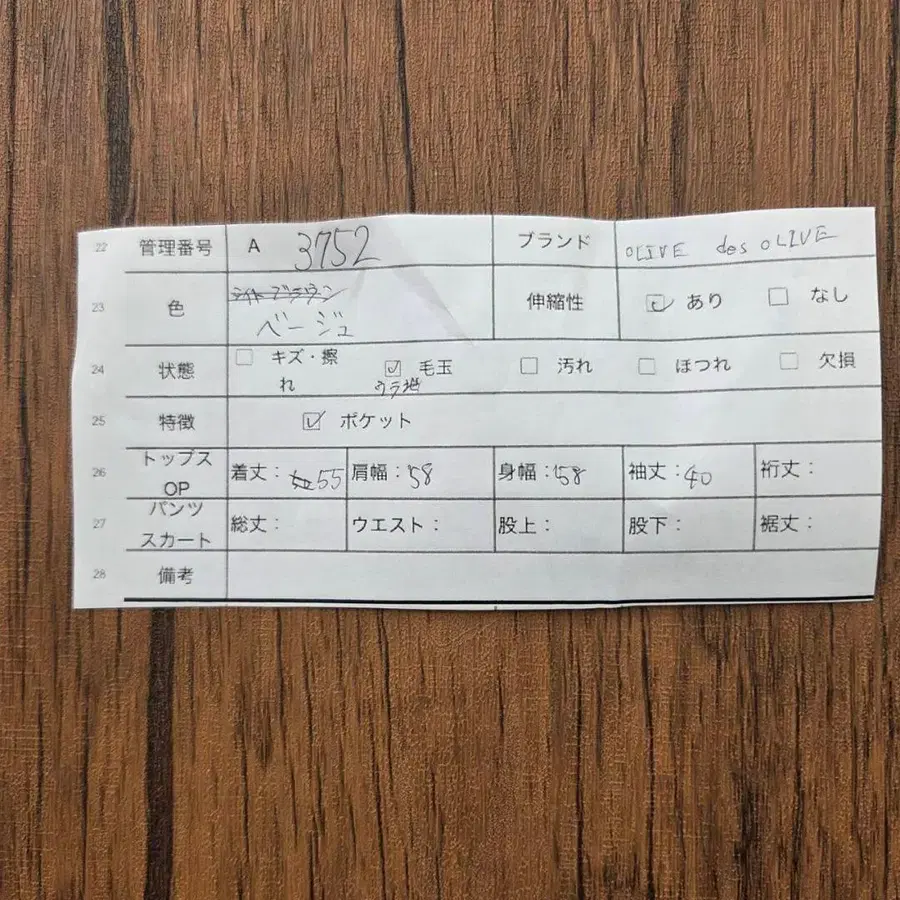 22 管理番号 A 3752 ブランド OLIVE des OLIVE
23 色 ライトブラウン 伸縮性 ☑ あり ☐ なし
ベージュ
24 状態 ☐ キズ・擦れ ☑ 毛玉 ☐ 汚れ ☐ ほつれ ☐ 欠損
ウラ地
25 特徴 ☑ ポケット
26 トップス OP 着丈: 55 肩幅: 58 身幅: 58 袖丈: 40 裄丈:
27 パンツ スカート 総丈: ウエスト: 股上: 股下: 裾丈:
28 備考